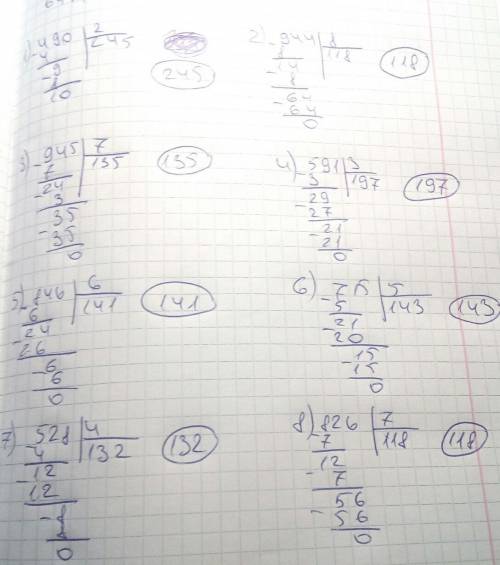 1) 490 | 2
- 4 245
- 9
8
10
245
2) 944 | 8
- 8 118
14
- 8
- 64
64
0
118
3) 945 | 7
- 7 135
- 24
3
- 35
- 35
0
135
4) 591 | 3
- 3 197
29
- 27
- 21
21
0
197
5) 846 | 6
- 6 141
- 24
26
- 6
6
0
141
6) 715 | 5
- 5 143
- 21
20
- 15
15
0
143
7) 528 | 4
- 4 132
- 12
12
- 8
8
0
132
8) 826 | 7
- 7 118
12
- 7
56
- 56
0
118